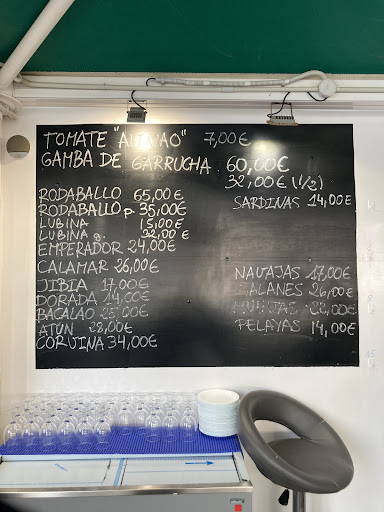 TOMATE "ALIÑAO" 7,00€
GAMBA DE GARRUCHA 60,00€
32,00€ (1/2)
RODABALLO 65,00€
RODABALLO P 35,00€
LUBINA 15,00€
LUBINA g. 32,00€
EMPERADOR 24,00€
CALAMAR 26,00€
JIBIA 17,00€
DORADA 14,00€
BACALAO 25,00€
ATUN 28,00€
CORVINA 34,00€
SARDINAS 14,00€
NAVAJAS 17,00€
GALANES 26,00€
22,00€
PELAYAS 14,00€